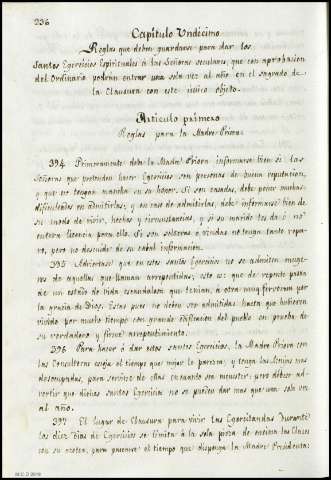 236
Capítulo Undécimo
Reglas que deben guardarse para dar los
Santos Ejercicios Espirituales á las Señoras seculares, que con aprobasion
del Ordinario podrán entrar una sola vez al año en el sagrado de
la Clausura con este único objeto.
Artículo primero
Reglas para la Madre Priora
394 Primeramente debe la Madre Priora informarse bien si las
Señoras que pretenden hacer Ejercicios son personas de buena reputacion,
y que no tengan mancha en su honor. Si son casadas, debe poner muchas
dificultades en admitirlas; y en caso de admitirlas, debe informarse bien de
su modo de vivir, hechos y circunstancias, y si su marido les dá ó no
entera licencia para ello. Si son solteras ó viudas no tenga tanto repa-
ro, pero no descuide de su cabal informacion.
395 Adviertase que en estos santos Ejercicios no se admiten muge-
res de aquellas que llaman arrepentidas; esto es: que de repente pasan
de un estado de vida escandalosa que tenian, á otra muy fervorosa por
la gracia de Dios. Estas pues no deben ser admitidas hasta que hubieren
vivido por mucho tiempo con grande edificacion del pueblo en prueba de
su verdadero y firme arrepentimiento.
396 Para hacer ó dar estos santos Ejercicios, la Madre Priora con
las Consultoras elija el tiempo que mejor le parezca, y tenga las Monjas mas
desocupadas, para servirse de ellas cuando sea menester; pero débese ad-
vertir que dichos santos Ejercicios no se pueden dar mas que una sola vez
al año.
397 El lugar de Clausura para vivir las Ejercitandas Durante
los diez Dias de Ejercicios se limita á la sola pieza de encima las Clases
con su azotea, para pasearse el tiempo que disponga la Madre Presidenta: